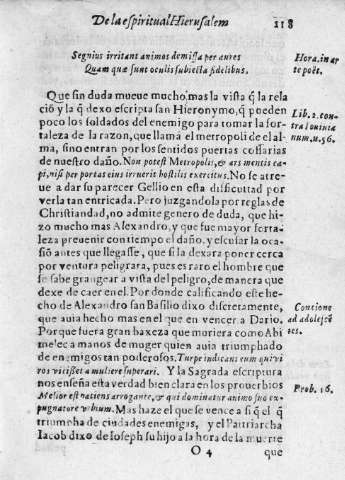 De la espiritual Hierusalem 118
Segnius irritant animos demissa per aures
Quam quæ sunt oculis subiecta fidelibus.
Hora. in ar
te poët.
Que sin duda mueue mucho mas la vista q̃ la rela
ciõ y la q̃ dexo escripta san Hieronymo, q̃ pueden
poco los soldados del enemigo para tomar la for-
taleza de la razon, que llama el metropoli de el al-
ma, sino entran por los sentidos puertas cossarias
de nuestro daño. Non potest Metropolis, & ars mentis ca-
pi, nisi per portas eius irruerit hostilis exercitus. No se atre-
ue a dar su parecer Gellio en esta difficultad por
verla tan entricada. Pero juzgandola por reglas de
Christiandad, no admite genero de duda, que hi-
zo mucho mas Alexandro, y que fue mayor forta-
leza preuenir con tiempo el daño, y escusar la oca-
siõ antes que llegasse, que si la dexara poner cerca
por ventura peligrara, pues es raro el hombre que
se sabe grangear a vista del peligro, de manera que
dexe de caer en el. Por donde calificando este he-
cho de Alexandro san Basilio dixo discretamente,
que auia hecho mas en el que en vencer a Dario.
Porque fuera gran baxeza que muriera como Abi
melec a manos de muger quien auia triumphado
de enemigos tan poderosos. Turpe indicans eum qui vi
ros vicisset a muliere superari. Y la Sagrada escriptura
nos enseña esta verdad bien clara en los prouerbios
Melior est patiens arrogante, & qui dominatur animo suo ex-
pugnatore vrbium. Mas haze el que se vence a si q̃ el q̃
triumpha de ciudades enemigas, y el Patriarcha
Iacob dixo de Ioseph su hijo a la hora de la muerte
Lib. 2. con-
tra Iouiniã
num. 56.
Concione
ad adolescẽ
tes.
Prob. 16.
O 4 que